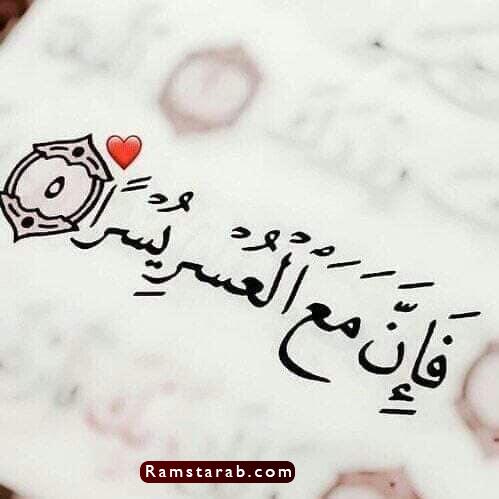 فَإِنَّ مَعَ ٱلْعُسْرِ يُسْرًا ٥
Ramstarab.com